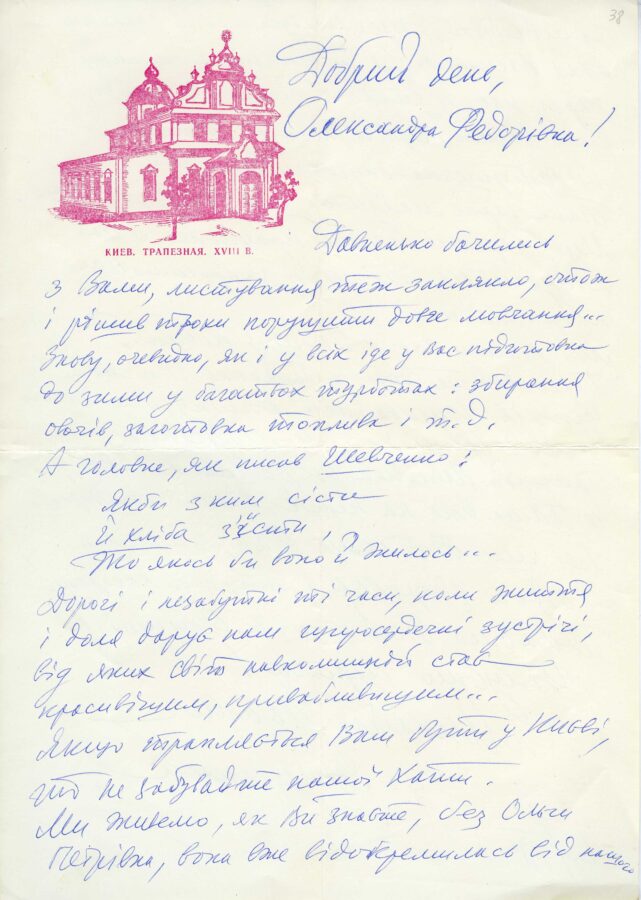 38
Добрий день,
Олександра Федорівна!
КИЕВ. ТРАПЕЗНАЯ. XVIII В.
Давненько бачились
з Вами, листування теж заклякло, отож
і рішив трохи порушити довге мовчання...
Знову, очевидно, як і у всіх іде у Вас підготовка
до зими у багатьох турботах: збирання
овочів, заготовка топлива і т.д.
А головне, як писав Шевченко:
Якби з ким сісти
Й хліба з'їсти,
То якось би воно й жилось...
Дорогі і незабутні ті часи, коли життя
і доля дарує нам щиросердечні зустрічі,
від яких світ навколишній став
красивішим, привабливішим...
Якщо трапляється Вам бути у Києві,
то не забувайте нашої хати.
Ми живемо, як Ви знаєте, без Ольги
Петрівна, вона вже відокремилась від нашого